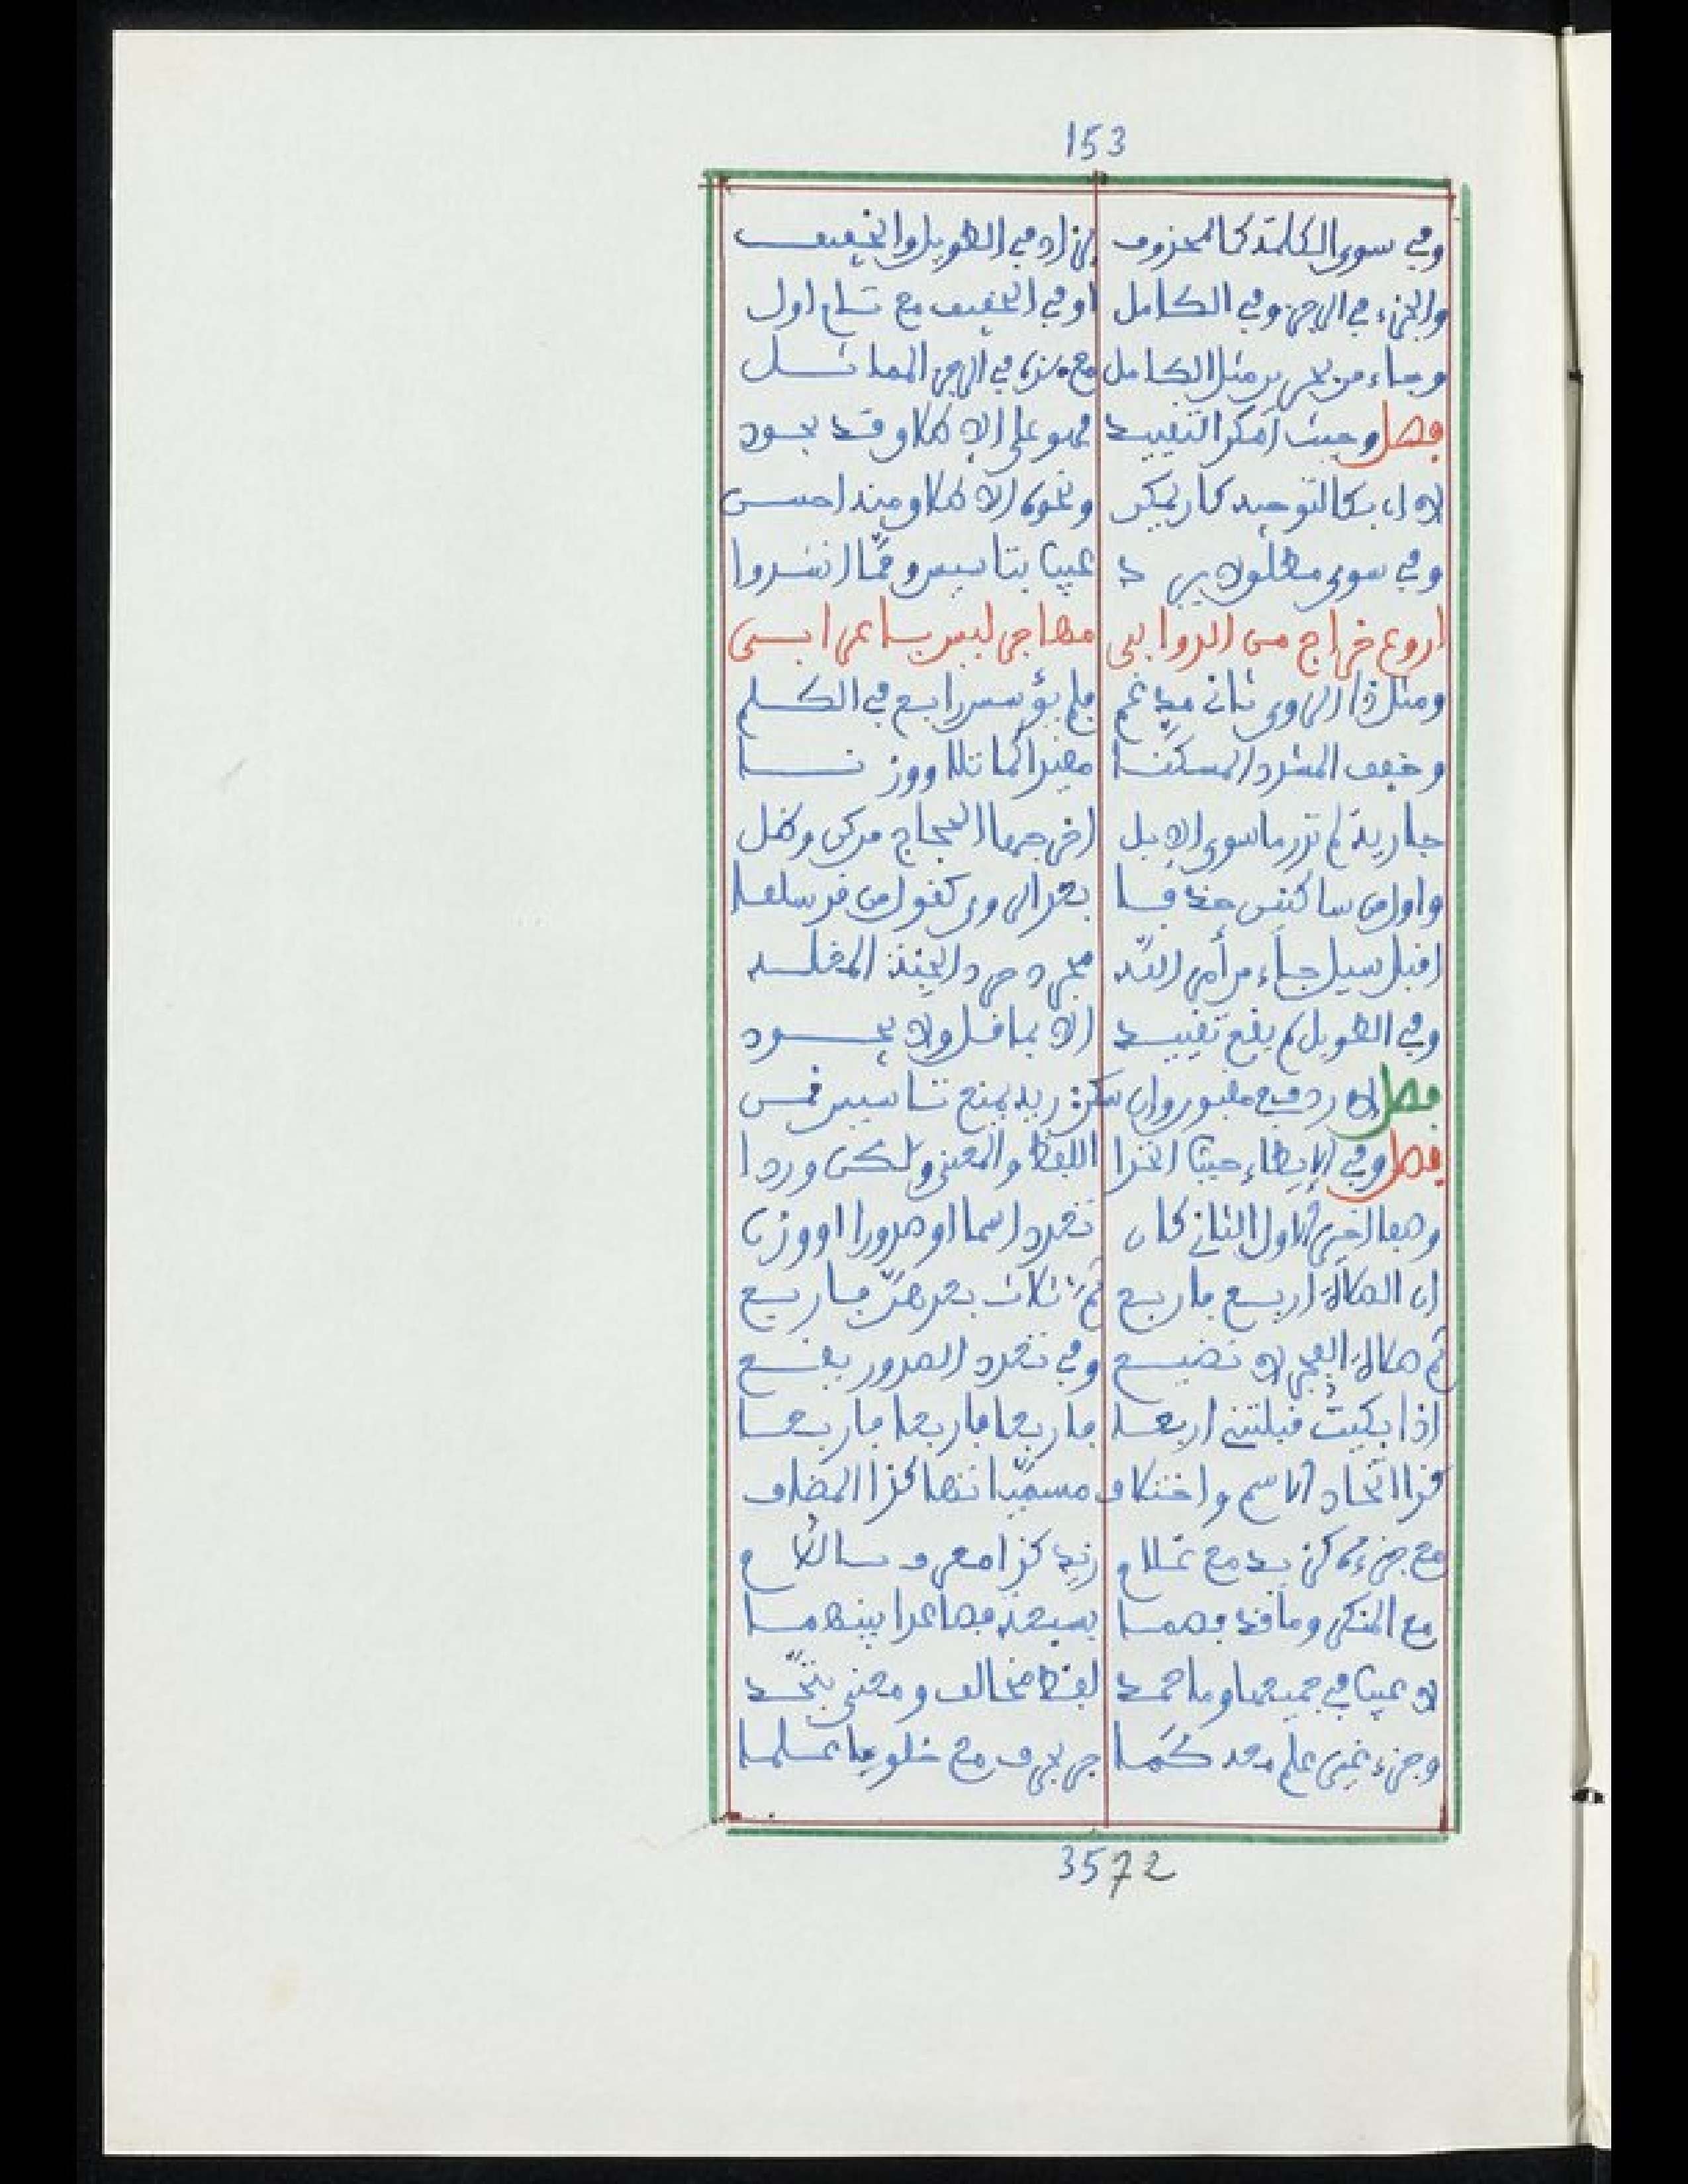 153
وفي سوى الكلمة كالمحذوف إن زاد في الطويل والخفيف
والجزء في الرجز وفي الكامل او في الخفيف مع تسام اول
وجاء من بحر مثل الكامل مع في الرجز المماثل
فصل وحيث أمكن التقييد فهو على الاطلاق وقد يجود
لاه ان بكالتوحيد كان يمكن ونحوه الاطلاق منه احسن
وفي سوى مطلق لا يرد عيبا بتاسيس ومما انشدوا
اروع خراج من الدوا مهاجر ليس بساعر
ومثل ذا الروي ثاني مدغم فلم يؤسس رابع في الكلم
وخفف المشدد المسكنا مقيدا كما تلا ووزنا
جارية لم تدر ما سوى الابل اخرجها الحجاج من كن وظل
واول من ساكنين حذفا بعد الروي كقول من قد سلفا
اقبل سيل جاء من أمر الله يحرد حرد الجنة المغله
وفي الطويل لم يقع تقييد الا بما قل ولا يجود
فصل لا ردف مع مقبور وان سكن ربه يمنع تاسيس قمن
فصل وفي الايطاء حيث اتحدا اللفظ والمعنى ولكن وردا
وهبا اخرى الاول الثاني كان تعدد اسما او صدورا او وزن
ان الصلاة اربع فاربع ثم ثلاث بعدهن فاربع
ثم صلاة الفجر لا تضيع وفي تعدد الصدور يقع
اذا بكيت قبلتني اربعا فاربعا فاربعا فاربعا
كذا اتحاد الاسم واختلاف مسمياتها كذا المضاف
مع جزءه كزيد مع غلام زيد كذا معرف باللام
مع المنكر وما قد فهما بسبعة فصاعدا بينهما
لا عيبا في جميعها وما حمد لفظ مخالف ومعنى يتحد
وجزء غير علم معه كما جر بحرف مع خلو فاعلما
3572